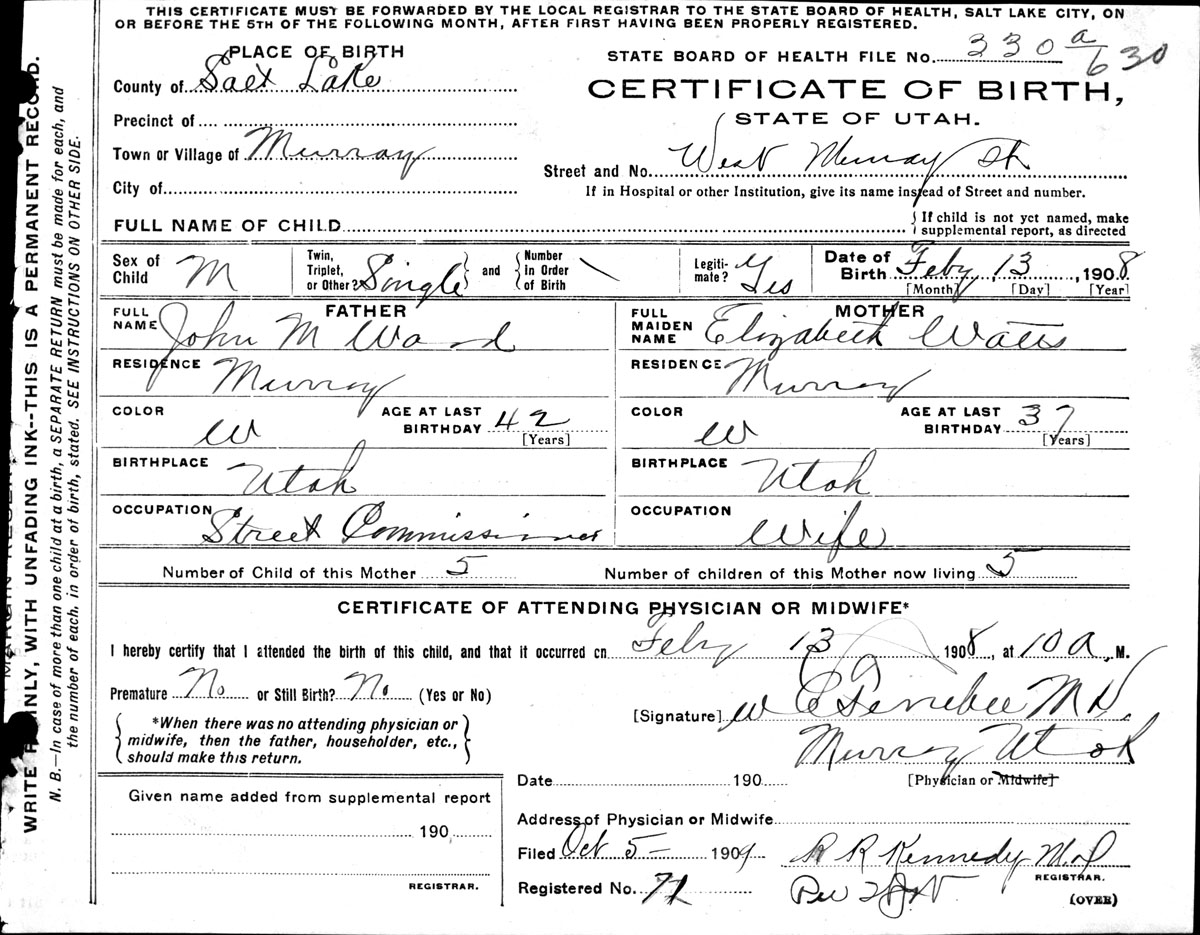 THIS CERTIFICATE MUST BE FORWARDED BY THE LOCAL REGISTRAR TO THE STATE BOARD OF HEALTH, SALT LAKE CITY, ON
OR BEFORE THE 5TH OF THE FOLLOWING MONTH, AFTER FIRST HAVING BEEN PROPERLY REGISTERED.
PLACE OF BIRTH
STATE BOARD OF HEALTH FILE No. 330 a/630
County of Salt Lake
CERTIFICATE OF BIRTH,
Precinct of
STATE OF UTAH.
Town or Village of Murray
Street and No. West Murray St
City of
If in Hospital or other Institution, give its name instead of Street and number.
FULL NAME OF CHILD
{ If child is not yet named, make supplemental report, as directed
Sex of Child M
Twin, Triplet, or Other? Single } and { Number In Order of Birth
Legitimate? Yes
Date of Birth Feby 13, 1908
[Month] [Day] [Year]
FATHER
MOTHER
FULL NAME John M Ward
FULL MAIDEN NAME Elizabeth Watts
RESIDENCE Murray
RESIDENCE Murray
COLOR W AGE AT LAST BIRTHDAY 42 [Years]
COLOR W AGE AT LAST BIRTHDAY 37 [Years]
BIRTHPLACE Utah
BIRTHPLACE Utah
OCCUPATION Street Commissioner
OCCUPATION Wife
Number of Child of this Mother 5 Number of children of this Mother now living 5
CERTIFICATE OF ATTENDING PHYSICIAN OR MIDWIFE*
I hereby certify that I attended the birth of this child, and that it occurred on Feby 13 1908, at 10 a, M.
Premature No or Still Birth? No (Yes or No)
[Signature] W M D,
*When there was no attending physician or
midwife, then the father, householder, etc.,
should make this return.
Murray Utah
Date 190
[Physician or Midwife]
Given name added from supplemental report
190
REGISTRAR.
Address of Physician or Midwife
Filed Oct 5- 1909 R R Kennedy M.D
REGISTRAR.
Registered No. 71
(OVER)
WRITE PLAINLY, WITH UNFADING INK--THIS IS A PERMANENT RECORD.
N. B.—In case of more than one child at a birth, a SEPARATE RETURN must be made for each, and
the number of each, in order of birth, stated. SEE INSTRUCTIONS ON OTHER SIDE.